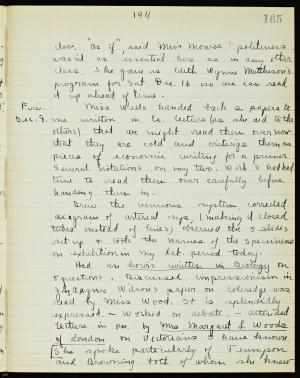 1911
165
class. "as if", said Miss Monroe "politeness
wasn't as essential here as in any other
class. She gave us Edith Wynne Matthison's
program for Sat. Dec. 16 so we can read
it up ahead of time.
Fri. Miss Weeks handed back 2 papers to
Dec. 8. me written in Ec. lecture (as she did to the
others) that we might read them over now
that they are cold and criticize them as
pieces of economic writing for a primer.
Several notations on my two. Wish I had had
time to read them over carefully before
handing them in.
Drew the venous system, corrected
diagram of arterial sys, (making it closed
tubes instead of lines) observed the 5 slides
set up & took the names of the specimens
on exhibition in my lab. period today.
Had an hour's written in Biology on
questions. Discussed impressionism in
Wilson's paper on Coleridge was
read by Miss Wood. It is splendidly
expressed. – Worked on debate. – attended
lecture in p.m. by Mrs Margaret L Woods
of London on Victorians I have known
She spoke particularly of Tennyson
and Browning both of whom she knew